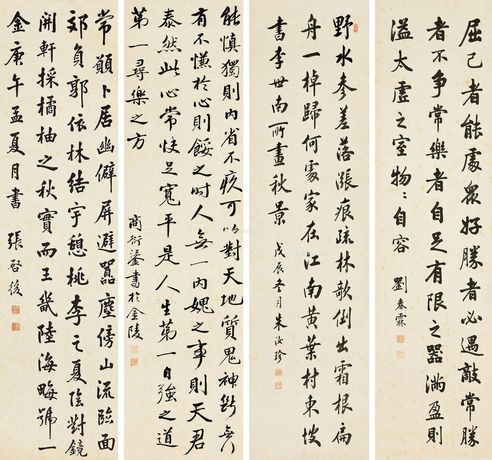 屈己者能處眾好勝者必遇敵常勝
者不爭常樂者自足有限之器滿盈則
溢太虛之室物〻自容 劉春霖
野水參差落漲痕疏林欹倒出霜根扁
舟一棹歸何處家在江南黃葉村東坡
書李世南所畫秋景 戊辰冬月朱汝珍
能慎獨則內省不疚可以對天地質鬼神斷無
有不慊於心則餒之時人無一內媿之事則天君
泰然此心常快足寬平是人生第一自強之道
第一尋樂之方 商衍鎏書於金陵
常願卜居幽僻屏避囂塵傍山流臨面
郊負郭依林結宇憩桃李之夏陰對鏡
開軒採橘柚之秋實而王畿陸海畮號一
金庚午孟夏月書 張啓後